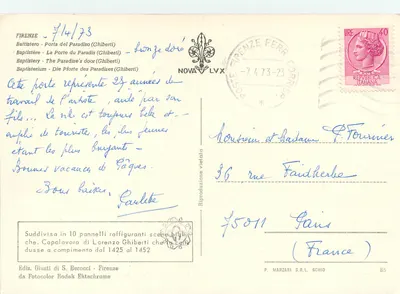 FIRENZE - 7/4/73
Battistero - Porta del Paradiso (Ghiberti)
Baptistère - La Porte du Paradis (Ghiberti) - bronze doré
Baptistery - The Paradise's door (Ghiberti)
Baptisterium - Die Pforte des Paradieses (Ghiberti)
NOVA LVX
FIRENZE FERR
- 7. 4 73 - 2
40
Cette porte représente 27 années de
travail de l'artiste, aidé par son
fils... La ville est toujours belle et
emplie de touristes, les plus jeunes
étant les plus bruyants -
Bonnes vacances de Pâques.
Bons baisers,
Paulette
Suddivisa in 10 pannelli raffiguranti
che. Capolavoro di Lorenzo Ghiberti che
dusse a compimento dal 1425 al 1452
Ediz. Giusti di S. Becocci - Firenze
da Fotocolor Kodak Ektachrome
Riproduzione vietata
Monsieur et Madame P. Fournier
36 rue Faidherbe
75011 Paris
(France)